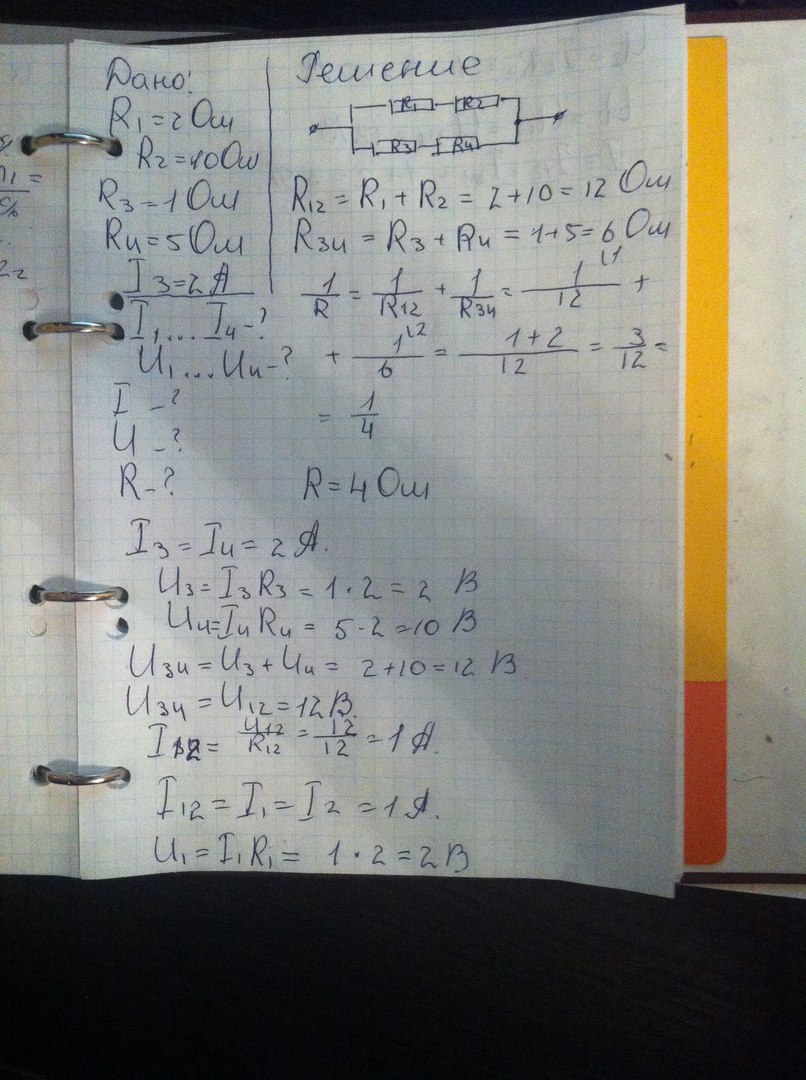 Дано:
R1 = 2 Ом
R2 = 10 Ом
R3 = 1 Ом
R4 = 5 Ом
I3 = 2 А
I1, ... I4 - ?
U1 ... U4 - ?
I - ?
U - ?
R - ?
Решение
R1 R2
R3 R4
R12 = R1 + R2 = 2 + 10 = 12 Ом
R34 = R3 + R4 = 1 + 5 = 6 Ом
1/R = 1/R12 + 1/R34 = 1/12 +
+ 1/6 = (1 + 2)/12 = 3/12 =
= 1/4
R = 4 Ом
I3 = I4 = 2 А.
U3 = I3 R3 = 1 · 2 = 2 В
U4 = I4 R4 = 5 · 2 = 10 В
U34 = U3 + U4 = 2 + 10 = 12 В
U34 = U12 = 12 В.
I12 = U12/R12 = 12/12 = 1 А.
I12 = I1 = I2 = 1 А.
U1 = I1 R1 = 1 · 2 = 2 В